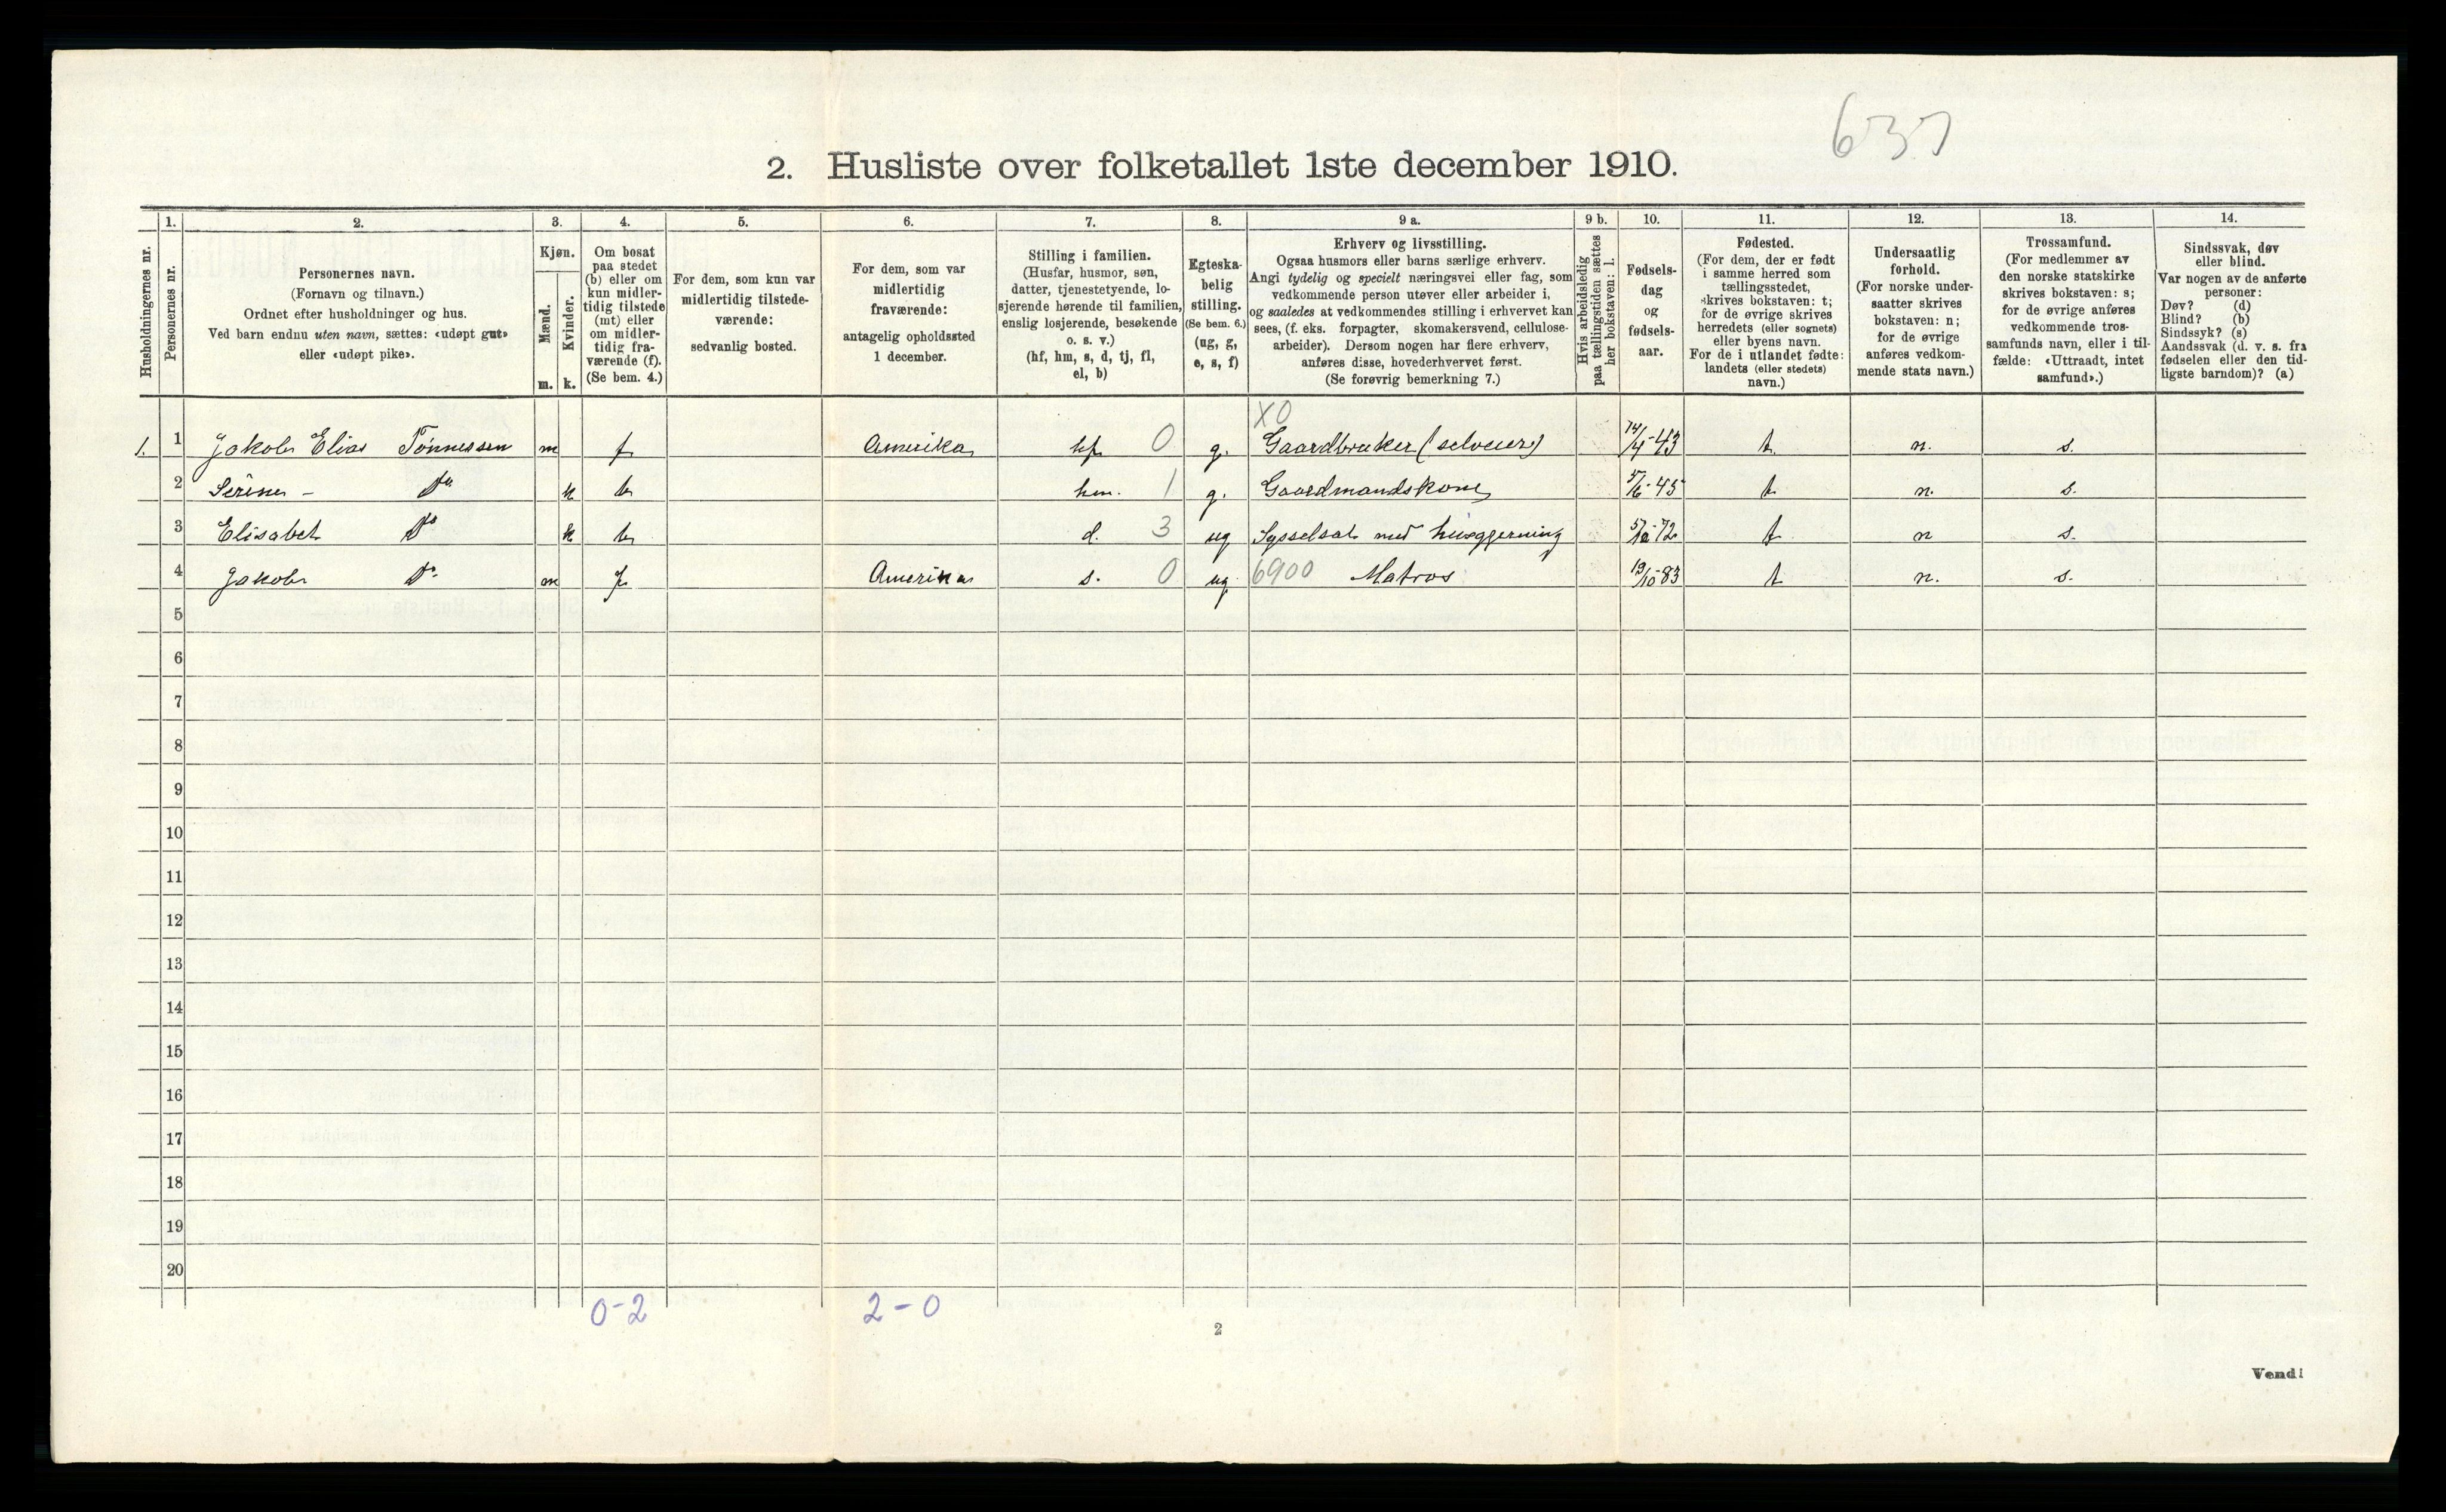 637
2. Husliste over folketallet 1ste december 1910.
Husholdningernes nr.
1.
Personernes nr.
2.
Personernes navn.
(Fornavn og tilnavn.)
Ordnet efter husholdninger og hus.
Ved barn endnu uten navn, sættes: «udøpt gut»
eller «udøpt pike».
3.
Kjøn.
Mænd.
m.
Kvinder.
k.
4.
Om bosat
paa stedet
(b) eller om
kun midler-
tidig tilstede
(mt) eller
om midler-
tidig fra-
værende (f).
(Se bem. 4.)
5.
For dem, som kun var
midlertidig tilstede-
værende:
sedvanlig bosted.
6.
For dem, som var
midlertidig
fraværende:
antagelig opholdssted
1 december.
7.
Stilling i familien.
(Husfar, husmor, søn,
datter, tjenestetyende, lo-
sjerende hørende til familien,
enslig losjerende, besøkende
o. s. v.)
(hf, hm, s, d, tj, fl,
el, b)
8.
Egteska-
belig
stilling.
(Se bem. 6.)
(ug, g,
e, s, f)
9 a.
Erhverv og livsstilling.
Ogsaa husmors eller barns særlige erhverv.
Angi tydelig og specielt næringsvei eller fag, som
vedkommende person utøver eller arbeider i,
og saaledes at vedkommendes stilling i erhvervet kan
sees, (f. eks. forpagter, skomakersvend, cellulose-
arbeider). Dersom nogen har flere erhverv,
anføres disse, hovederhvervet først.
(Se forøvrig bemerkning 7.)
9 b.
Hvis arbeidsledig
paa tællingstiden sættes
her bokstaven: l.
10.
Fødsels-
dag
og
fødsels-
aar.
11.
Fødested.
(For dem, der er født
i samme herred som
tællingsstedet,
skrives bokstaven: t;
for de øvrige skrives
herredets (eller sognets)
eller byens navn.
For de i utlandet fødte:
landets (eller stedets)
navn.)
12.
Undersaatlig
forhold.
(For norske under-
saatter skrives
bokstaven: n;
for de øvrige
anføres vedkom-
mende stats navn.)
13.
Trossamfund.
(For medlemmer av
den norske statskirke
skrives bokstaven: s;
for de øvrige anføres
vedkommende tros-
samfunds navn, eller i til-
fælde: «Uttraadt, intet
samfund».)
14.
Sindssvak, døv
eller blind.
Var nogen av de anførte
personer:
Døv? (d)
Blind? (b)
Sindssyk? (s)
Aandssvak (d. v. s. fra
fødselen eller den tid-
ligste barndom)? (a)
X0
1. 1 Jakob Elias Tønnessen m f Amerika hf 0 g. Gaardbruker (selveier) 14/4-43 t. n. s.
2 Serine - Do k b hm. 1 g. Gaardmandskone 5/6-45 t n. s.
3 Elisabet Do k b d. 3 ug Sysselsat med husgjerning t n s.
4 Jakob Do m f Amerika s. 0 ug 6900 Matros 19/10-83 t n. s.
5
6
7
8
9
10
11
12
13
14
15
16
17
18
19
20
0-2 2-0
2
Vend!